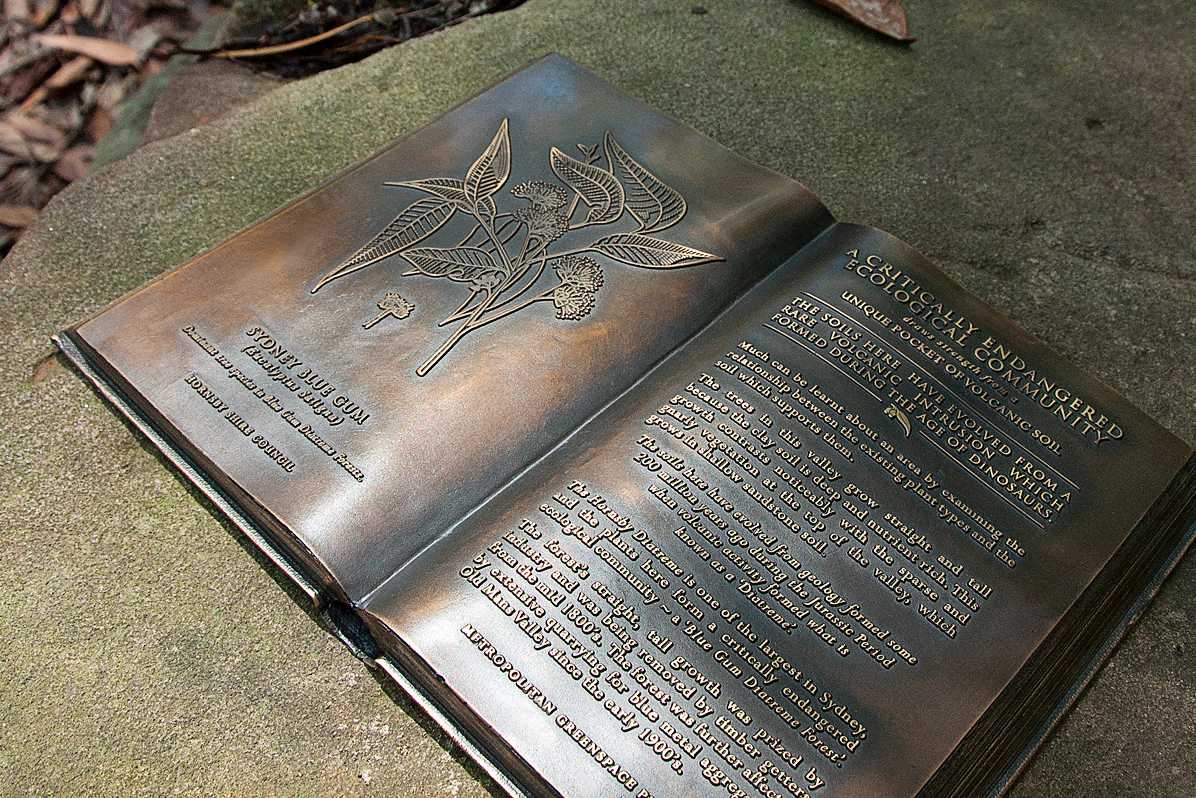 SYDNEY BLUE GUM
(Eucalyptus Saligna)
Dominant tree species in Blue Gum Diatreme Forests.
HORNSBY SHIRE COUNCIL
A CRITICALLY ENDANGERED
ECOLOGICAL COMMUNITY
draws strength from a
UNIQUE POCKET OF VOLCANIC SOIL
THE SOILS HERE HAVE EVOLVED FROM A
RARE VOLCANIC INTRUSION, WHICH
FORMED DURING THE AGE OF DINOSAURS.
Much can be learnt about an area by examining the
relationship between the existing plant types and the
soil which supports them.
The trees in this valley grow straight and tall
because the clay soil is deep and nutrient rich. This
growth contrasts noticeably with the sparse and
gnarly vegetation at the top of the valley, which
grows in shallow sandstone soil.
The soils here have evolved from geology formed some
200 million years ago during the Jurassic Period
when volcanic activity formed what is
known as a 'Diatreme'.
The Hornsby Diatreme is one of the largest in Sydney,
and the plants here form a critically endangered
ecological community ~ a 'Blue Gum Diatreme Forest'.
The forest's straight, tall growth was prized by
industry and was being removed by timber getters
from the mid 1800's. The forest was further affected
by extensive quarrying for blue metal
Old Mans Valley since the early 1900's.
METROPOLITAN GREENSPACE